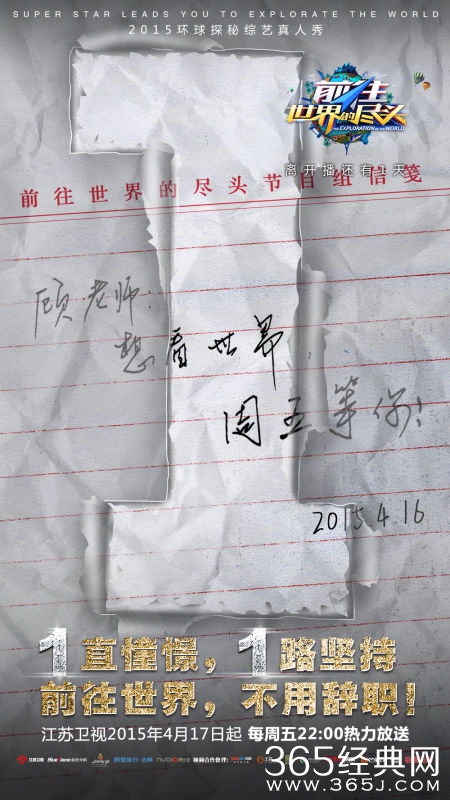 SUPER STAR LEADS YOU TO EXPLORATE THE WORLD
2015环球探秘综艺真人秀
前往
世界的尽头
THE EXPLORATION OF THE WORLD
离开播还有1天
前往世界的尽头节目组信笺
顾老师:
想看世界
周五等你!
2015.4.16
1直憧憬,1路坚持
前往世界,不用辞职!
江苏卫视2015年4月17日起 每周五22:00热力放送
江苏卫视 Blue Jane 阿里旅行·去啊 nubia 视频合作伙伴:
365经典网
www.365J.com